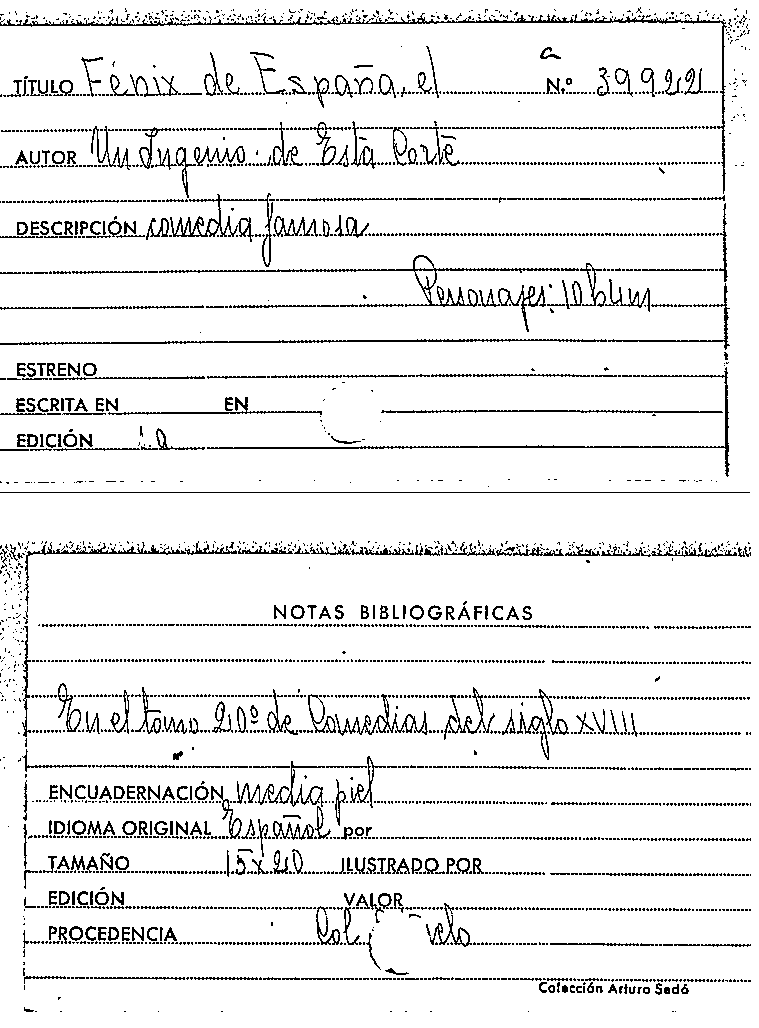 a
TÍTULO Fénix de España, el N.º 39921
AUTOR Un Ingenio de Esta Corte
DESCRIPCIÓN comedia famosa
Personajes: 10 h 4 m
ESTRENO
ESCRITA EN EN
EDICIÓN
NOTAS BIBLIOGRÁFICAS
En el tomo 20º de Comedias del siglo XVIII
ENCUADERNACIÓN media piel
IDIOMA ORIGINAL Español por
TAMAÑO 15x20 ILUSTRADO POR
EDICIÓN VALOR
PROCEDENCIA Col.
Colección Arturo Sedó